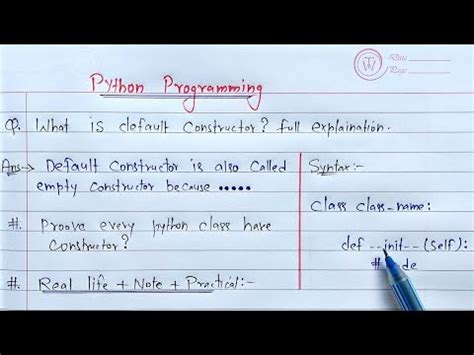 Date
Page
Python Programming
Q. What is default constructor? full explaination.
Ans:-> Default constructor is also called
empty constructor because .....
#. Proove every python class have
constructor?
#. Real life + Note + Practical:-
Syntax:-
class class-name:
def --init-- (self):
# de